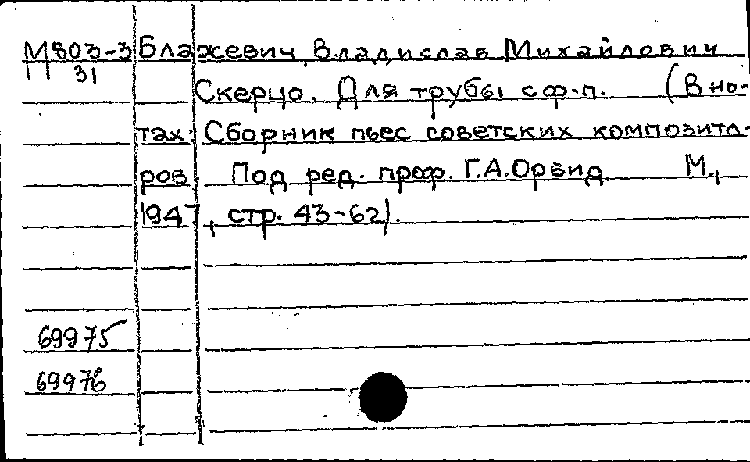 М803-3 Блажевич, Владислав Михайлович
П 31
Скерцо. Для трубы с ф-п. (В но-
тах: Сборник пьес советских композито-
ров. Под ред. проф. Г.А.Орвид. М.,
1947, стр. 43-62).
69975
69976